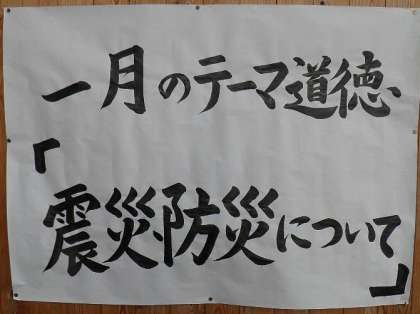 一月のテーマ道徳
「震災・防災について」